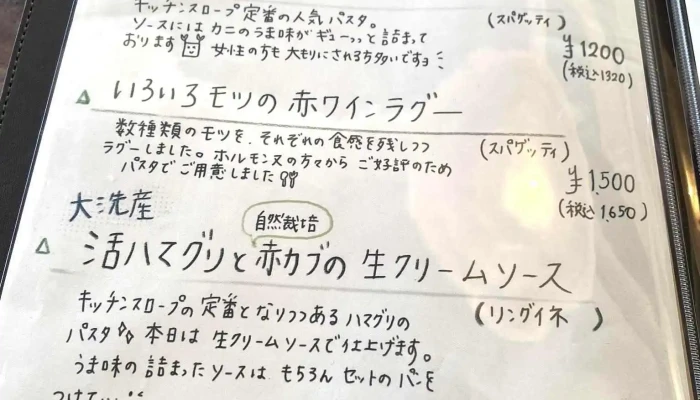 キッチンスロープ定番の人気パスタ。
(スパゲッティ)
ソースにはカニのうま味がギューっっと詰まって
おります 女性の方も大もりにされる方多いですョ
¥1200
(税込1320)
△ いろいろモツの 赤ワインラグー
数種類のモツを、それぞれの食感を残しつつ
(スパゲッティ)
ラグーしました。ホルモンヌの方々から ご好評のため
パスタでご用意しました
¥1,500
(税込1,650)
大洗産
自然栽培
△ 活ハマグリと赤カブの 生クリームソース
(リングイネ )
キッチンスロープの定番となりつつあるハマグリの
パスタ 本日は 生クリームソースで仕上げます。
うま味の詰まったソースは、もちろん セットのパンを